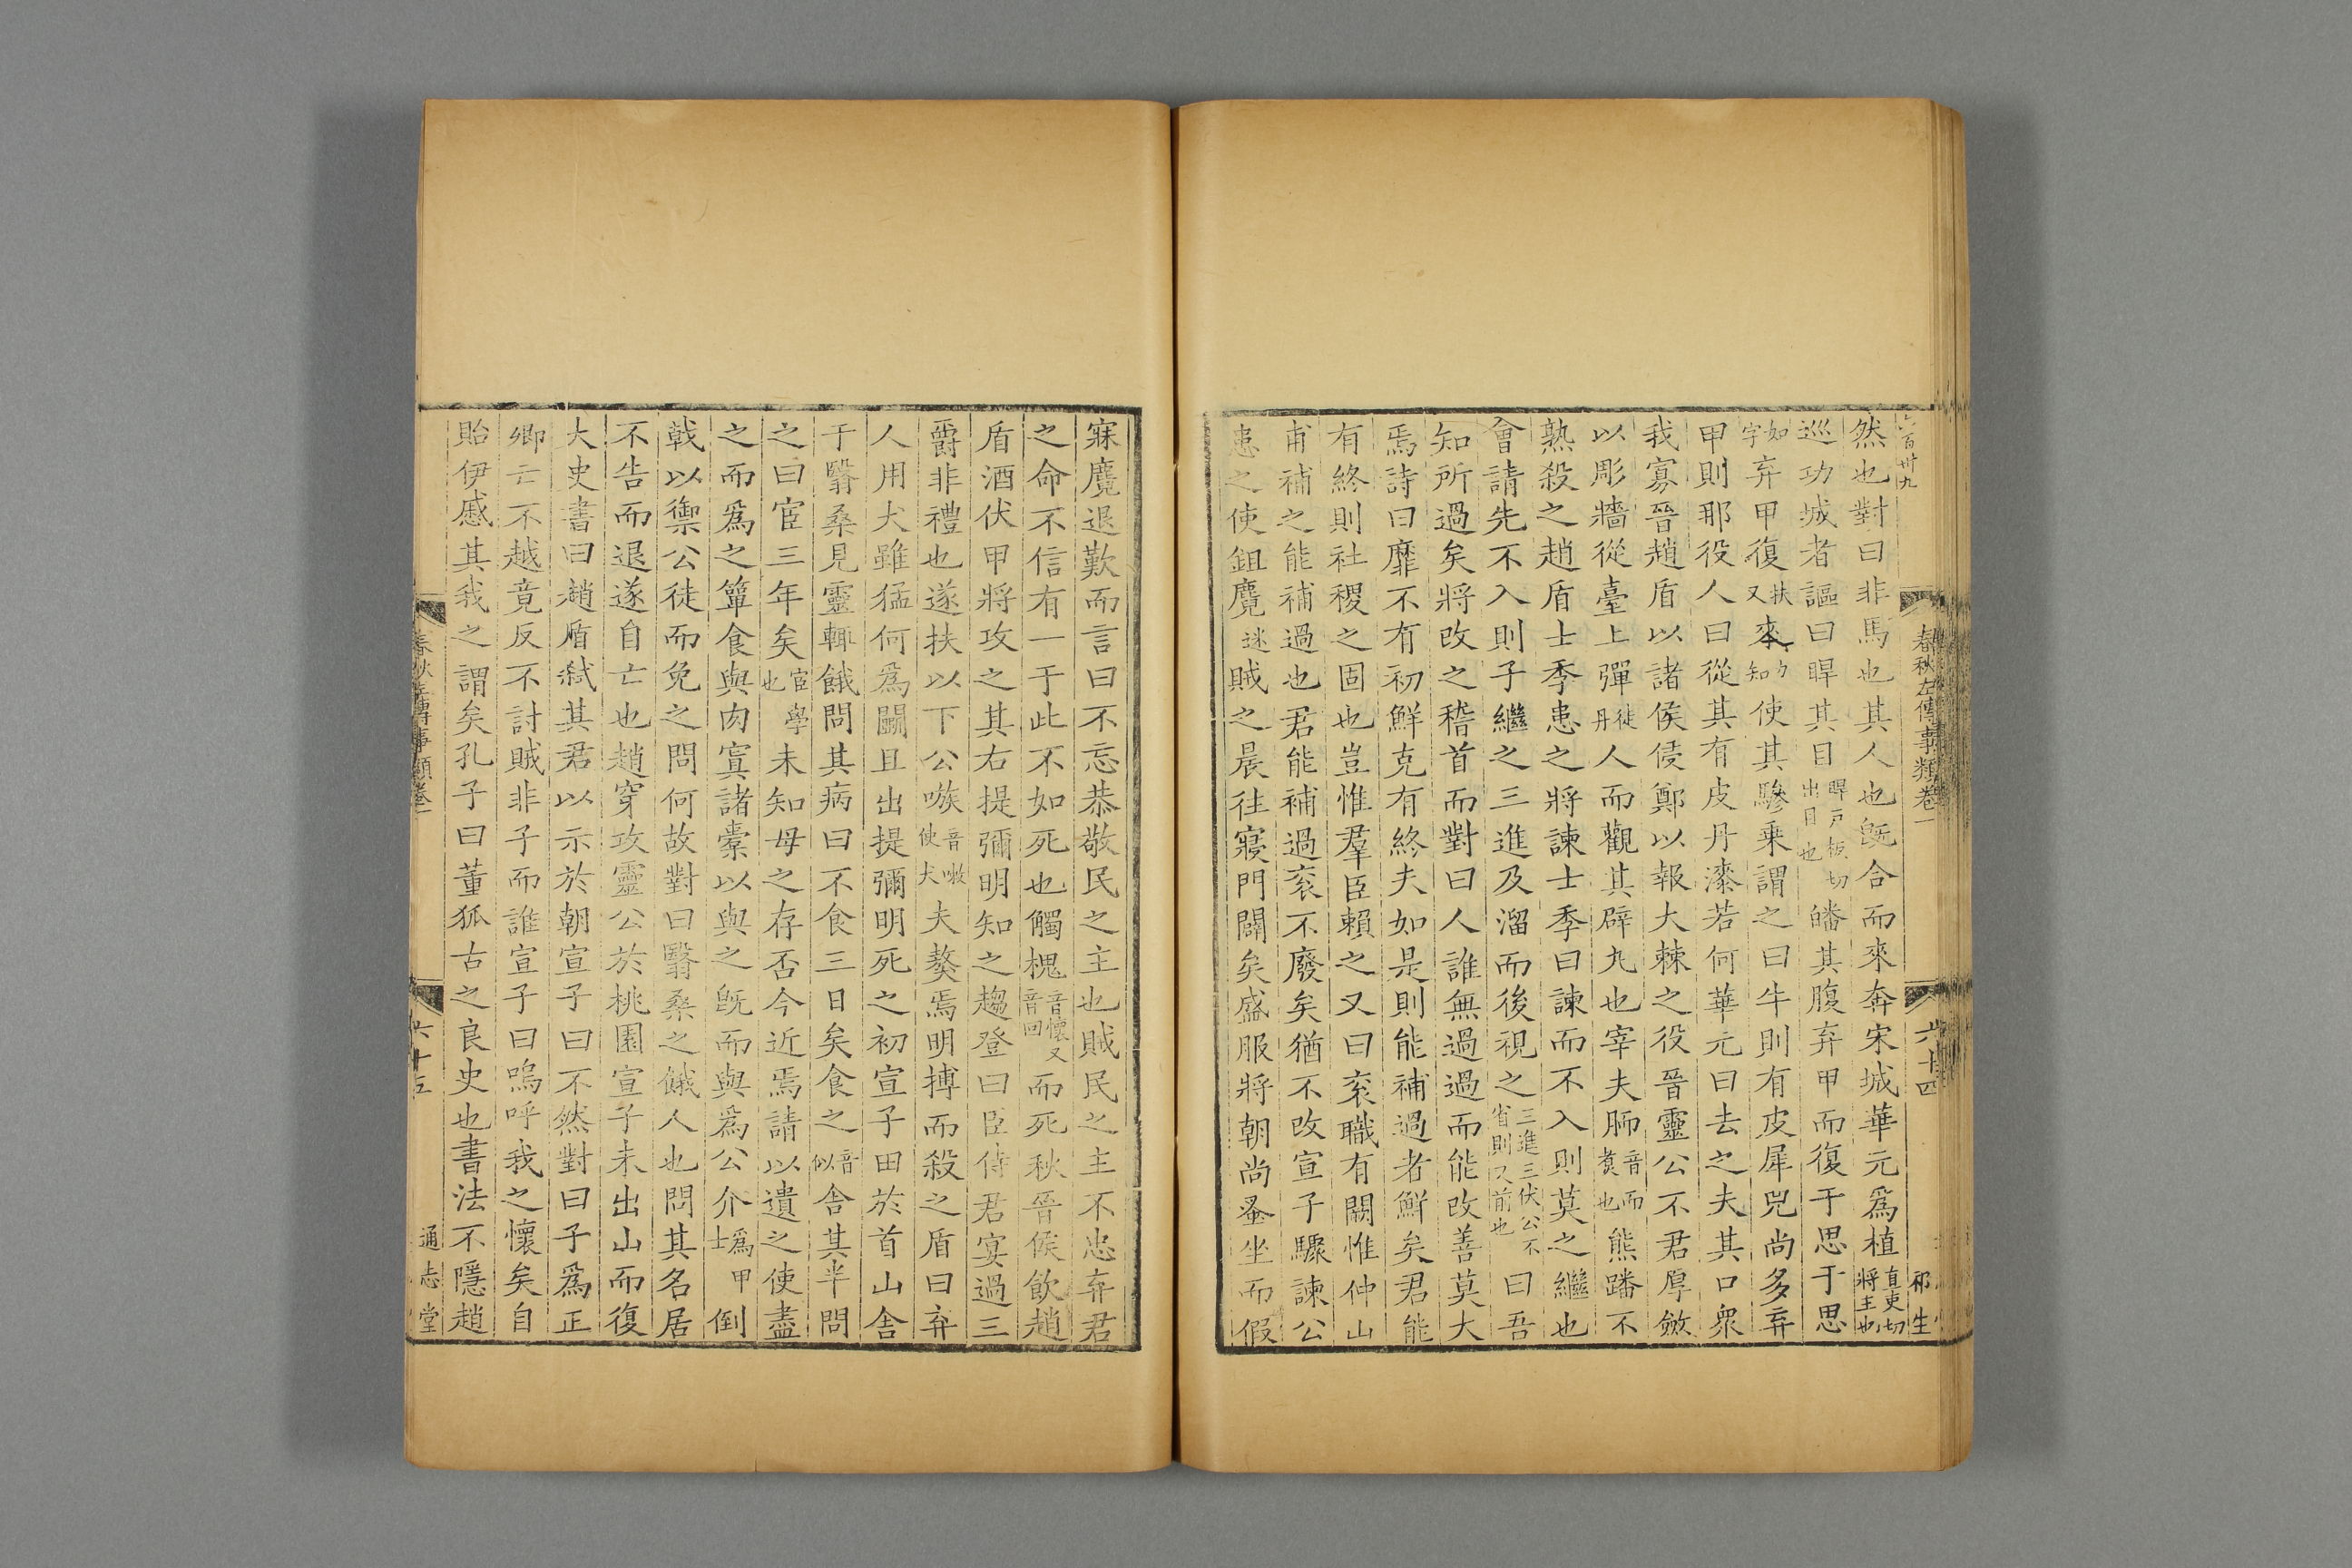 六百卅九
春秋左傳事類卷一
六十四
邢生
然也對曰非馬也其人也旣合而來奔宋城華元爲植直吏切將主也
巡功城者謳曰睅其目睅戸板切出目也皤其腹弃甲而復于思于思
如字弃甲復扶又來力知使其驂乗謂之曰牛則有皮犀兕尚多弃
甲則那役人曰從其有皮丹漆若何華元曰去之夫其口衆
我寡晉趙盾以諸侯侵鄭以報大棘之役晉靈公不君厚斂
以彫牆從臺上彈徒丹人而觀其辟丸也宰夫胹音而煑也熊蹯不
熟殺之趙盾士季患之將諫士季曰諫而不入則莫之繼也
會請先不入則子繼之三進及溜而後視之三進三伏公不省則又前也曰吾
知所過矣將改之稽首而對曰人誰無過過而能改善莫大
焉詩曰靡不有初鮮克有終夫如是則能補過者鮮矣君能
有終則社稷之固也豈惟羣臣賴之又曰衮職有闕惟仲山
甫補之能補過也君能補過衮不廢矣猶不改宣子驟諫公
患之使鉏麑迷賊之晨往寢門闢矣盛服將朝尚蚤坐而假
寐麑退歎而言曰不忘恭敬民之主也賊民之主不忠弃君
之命不信有一于此不如死也觸槐音懷又音回而死秋晉侯飲趙
盾酒伏甲將攻之其右提彌明知之趨登曰臣侍君宴過三
爵非禮也遂扶以下公嗾音嗽使犬夫獒焉明搏而殺之盾曰弃
人用犬雖猛何爲鬭且出提彌明死之初宣子田於首山舍
于翳桑見靈輒餓問其病曰不食三日矣食之音似舍其半問
之曰宦三年矣宦學也未知母之存否今近焉請以遺之使盡
之而爲之簞食與肉寘諸橐以與之旣而與爲公介爲甲士倒
戟以禦公徒而免之問何故對曰翳桑之餓人也問其名居
不告而退遂自亡也趙穿攻靈公於桃園宣子未出山而復
大史書曰趙盾弑其君以示於朝宣子曰不然對曰子爲正
卿亡不越竟反不討賊非子而誰宣子曰嗚呼我之懷矣自
貽伊慼其我之謂矣孔子曰董狐古之良史也書法不隱趙
春秋左傳事類卷一
六十五
通志堂